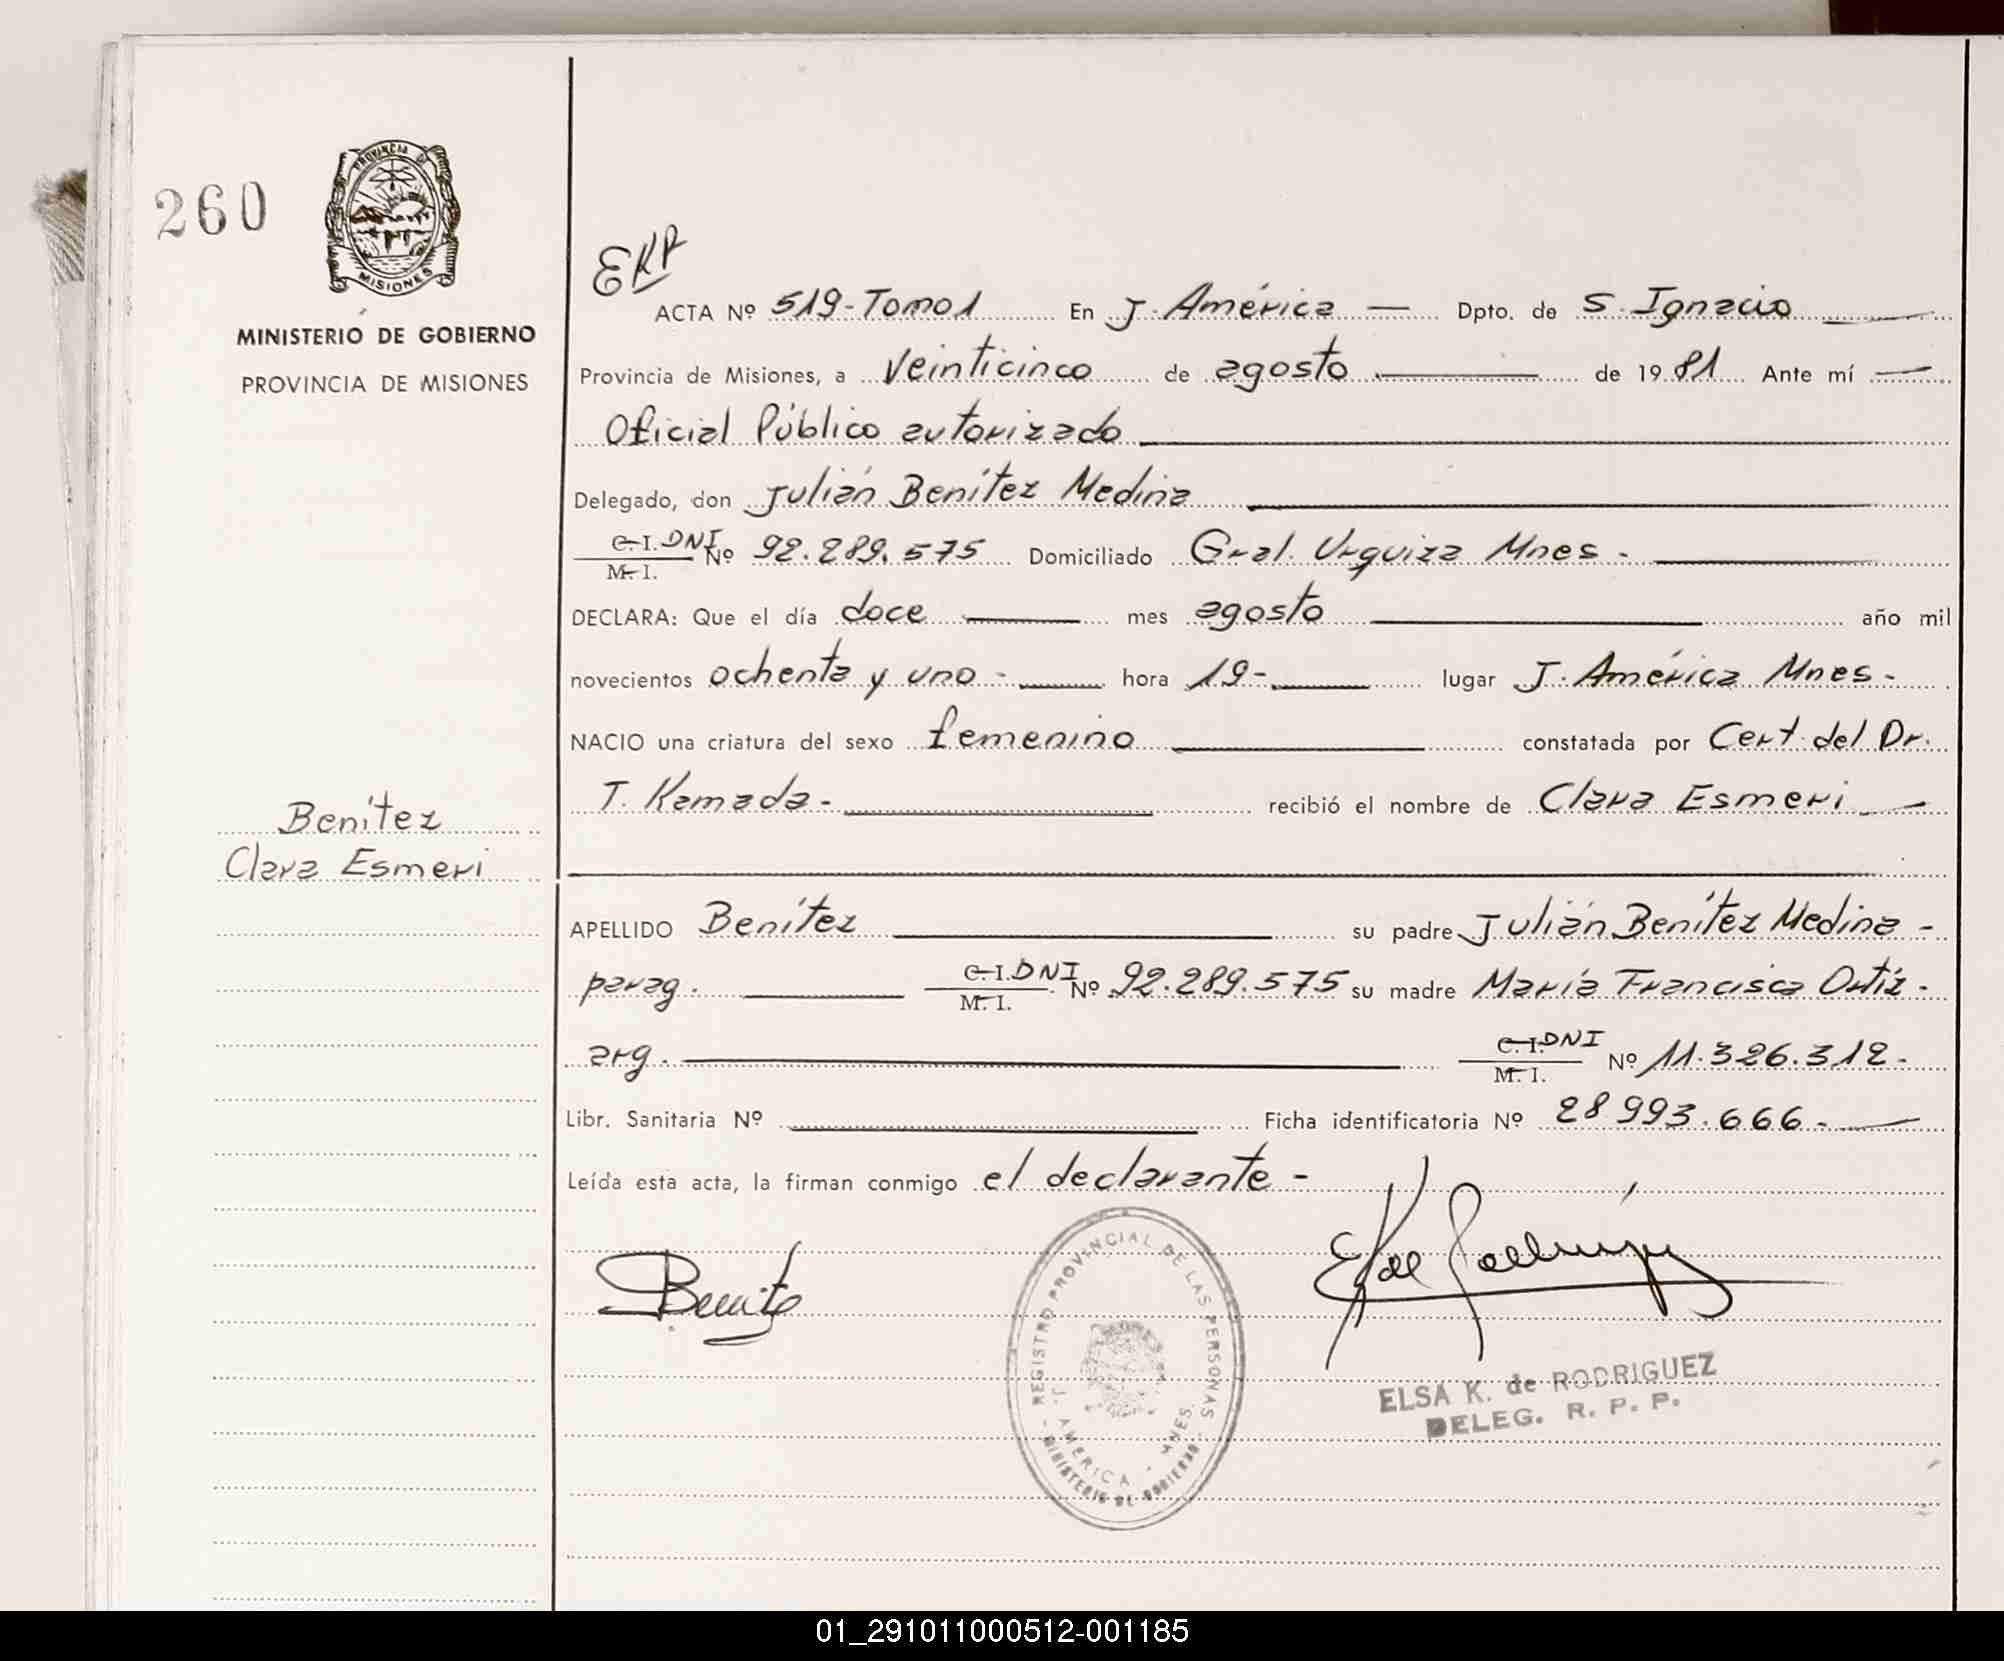 260
PROVINCIA DE
MISIONES
MINISTERIO DE GOBIERNO
PROVINCIA DE MISIONES
EKR
ACTA Nº 519-Tomo 1 En J. América — Dpto. de S. Ignacio
Provincia de Misiones, a Veinticinco de agosto de 1981 Ante mí
Oficial Público autorizado
Delegado, don Julián Benítez Medina
C. I. DNI
M. I. Nº 92.289.575 Domiciliado Gral. Urquiza Mnes.-
DECLARA: Que el día doce mes agosto año mil
novecientos ochenta y uno- hora 19- lugar J. América Mnes-
NACIO una criatura del sexo femenino constatada por Cert. del Dr.
T. Kamada- recibió el nombre de Clara Esmeri
Benítez
Clara Esmeri
APELLIDO Benítez su padre Julián Benítez Medina -
parag. C. I. DNI M. I. Nº 92.289.575 su madre María Francisca Ortíz-
arg. C. I. DNI M. I. Nº 11.326.312-
Libr. Sanitaria Nº Ficha identificatoria Nº 28 993.666-
Leída esta acta, la firman conmigo el declarante-
REGISTRO PROVINCIAL DE LAS PERSONAS
J. AMERICA - MNES.
MINISTERIO DE GOBIERNO
ELSA K. de RODRIGUEZ
DELEG. R. P. P.
01_291011000512-001185